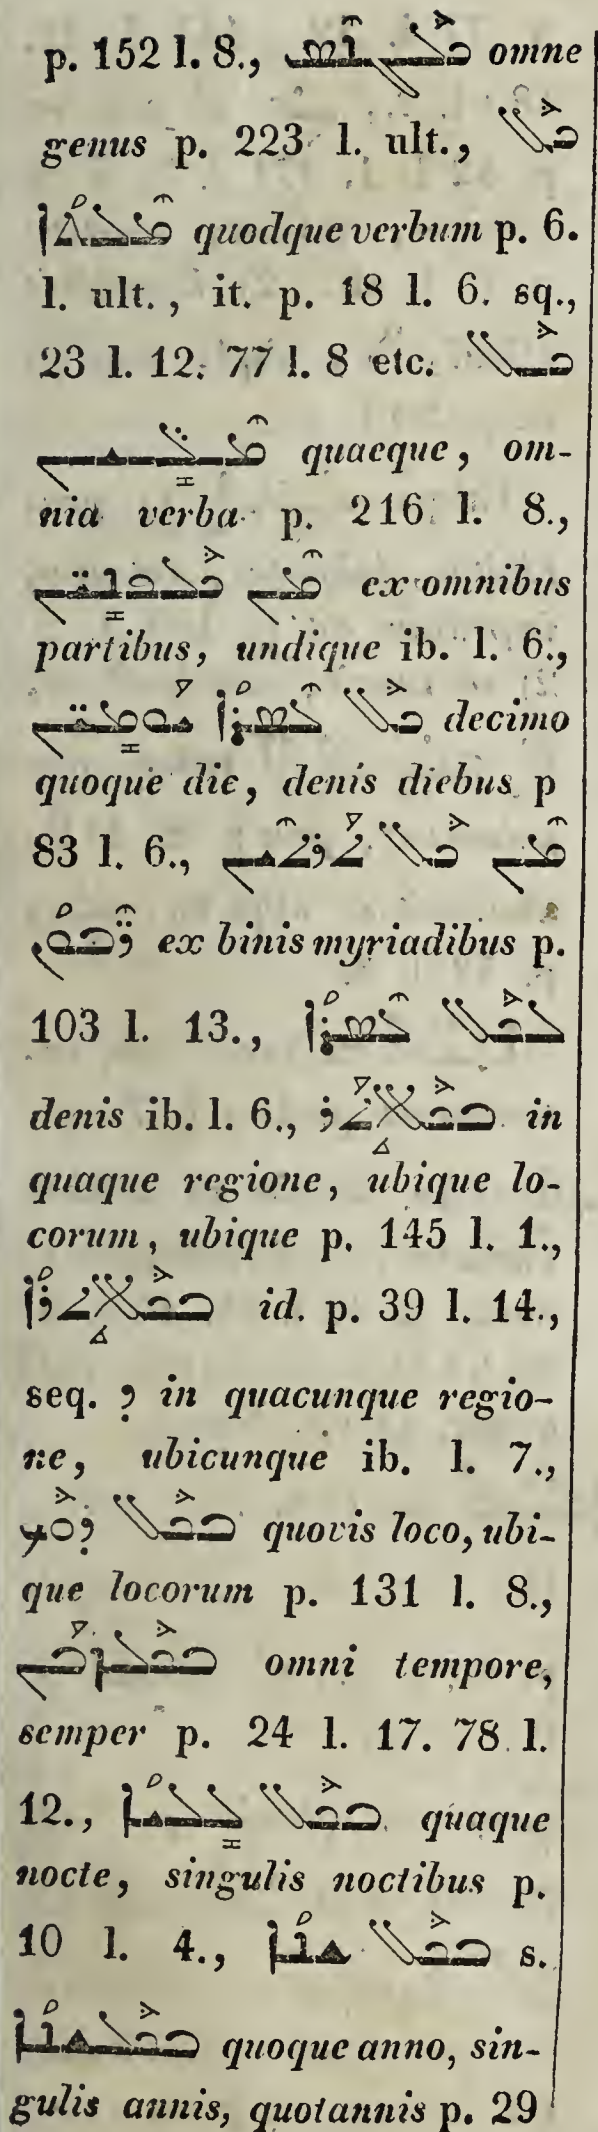 p. 152 l. 8., ܟܽܠܓܶܢܣ omne
genus p. 223 l. ult., ܟܽܠ
ܡܶܠܬܳܐ quodque verbum p. 6.
l. ult., it. p. 18 l. 6. sq.,
23 l. 12. 77 l. 8 etc. ܟܽܠ
ܡܶܠܺܝ̈ܢ quaeque, om-
nia verba p. 216 l. 8.,
ܡܶܢ ܟܽܠܦܢܺܝ̈ܢ ex omnibus
partibus, undique ib. l. 6.,
ܟܽܠ ܥܶܣܪܳܐ ܝܰܘܡܺܝ̈ܢ decimo
quoque die, denis diebus p
83 l. 6., ܡܶܢ ܟܽܠ ܬܰܪܬܶܝܢ
ܪ̈ܶܒܘܳܢ ex binis myriadibus p.
103 l. 13., ܠܟܽܠ ܥܶܣܪܳܐ
denis ib. l. 6., ܒܟܽܠܐܰܬܪ in
quaque regione, ubique lo-
corum, ubique p. 145 l. 1.,
ܒܟܽܠܐܰܬܪܳܐ id. p. 39 l. 14.,
seq. ܕ in quacunque regio-
ne, ubicunque ib. l. 7.,
ܒܟܽܠ ܕܽܘܟ quovis loco, ubi-
que locorum p. 131 l. 8.,
ܒܟܽܠܙܒܰܢ omni tempore,
semper p. 24 l. 17. 78 l.
12., ܒܟܽܠ ܠܺܠܝܳܐ quaque
nocte, singulis noctibus p.
10 l. 4., ܒܟܽܠ ܫܢܳܐ s.
ܒܟܽܠܫܢܳܐ quoque anno, sin-
gulis annis, quotannis p. 29